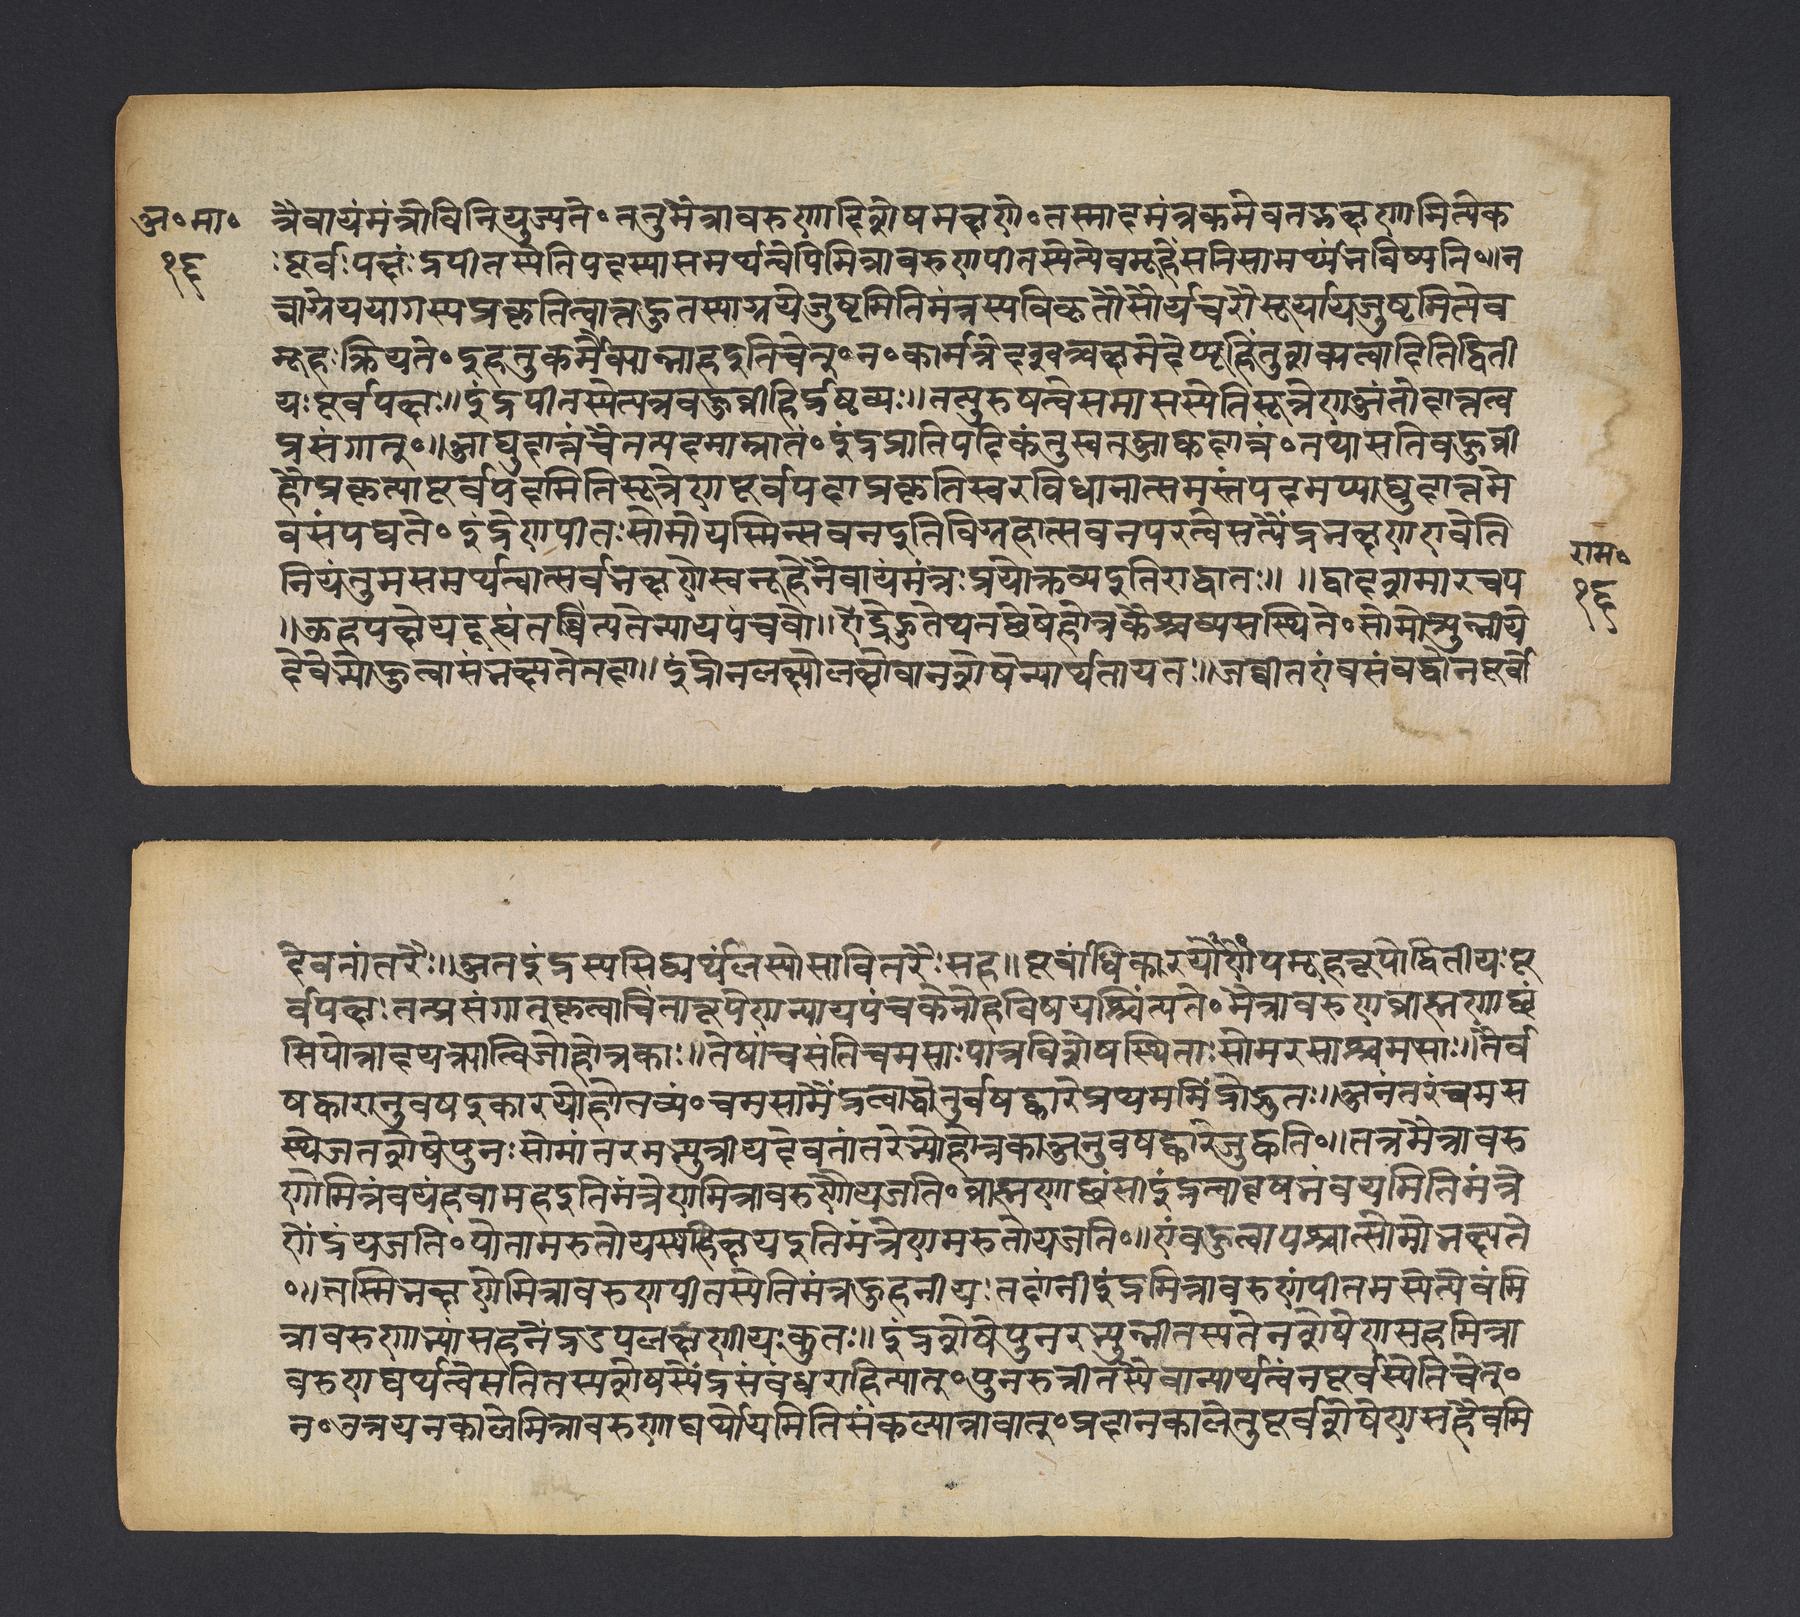 अ॰मा॰
१६
त्रैवायंमंत्रोविनियुज्यते॰ननुमैत्रावरुणादिशेषमक्षणे॰तस्मादमंत्रकमेवतद्भक्षणमित्येक
ःपूर्वःपक्षःंद्रपीतस्येतिपदस्यासमर्थत्वेपिमित्रावरुणपीतस्येत्येवमूहेसतिसामर्थ्यंभविष्यति॰॥न
चाग्नेययागस्यप्रकृतित्वान्नद्भुतस्याग्नयेजुष्टमितिमंत्रस्यविकृतौसौर्यचरौसूर्यायजुष्टमित्येव
मूहःक्रियते॰इहतुकर्मैक्यान्नोहइतिचेत्॰न॰कार्मभेदेइवाक्षकर्मभेदेप्यूहहेतुशक्यत्वादितिद्विती
यःपूर्वपक्षः॥इंद्रपीतस्येत्यत्रवहुव्रीहिर्द्रष्टव्यः॥तत्पुरुषत्वेसमासस्येतिसूत्रेणअंतोदात्तत्व
प्रसंगात्॰॥आद्युदात्तंचैतत्पदमाम्नातं॰इंद्रप्रातिपदिकंतुस्वतआद्युदात्तं॰तथासतिवहुव्री
हौप्रकृत्यापूर्वपदमितिसूत्रेणपूर्वपदप्रकृतिस्वरविधानात्समस्तपदमप्याद्युदात्तमे
वसंपद्यते॰इंद्रेणपीतःसोमोयस्मिन्सवनइतिविग्रहात्सवनपरत्वेसत्यैंद्रभक्षणएवेति
नियंतुमसमर्थत्वात्सर्वभक्षणेस्वनूहेनैवायंमंत्रःप्रयोक्तव्यइतिराद्धांतः॥ ॥द्वादशमारचप
॥ऊहपक्षेयदूह्यंतच्चिंत्यतेन्यायपंचके॥ऐंद्रेहुतेथतच्छेषेहोत्रकैश्चषसस्थिते॰सोमोभ्युन्नीये
देवेभ्योहुत्वासंभक्ष्यतेतदा॥इंद्रोनलक्ष्योलक्ष्योवानशेषेन्यार्थतायतः॥जघ्रीतएंवसंवद्धोनपूर्वो
राम॰
१६
देवतांतरैः॥अतइंद्रस्यसिद्ध्यर्थंलक्ष्योसावितरैःसह॥पूर्वाधिकारयोएोपमूहरूपोद्वितीयःपू
र्वपक्षःतत्प्रसंगात्कृत्वाचिंतारूपेणन्यायपंचकेनोहविषयश्चिंत्यते॰मैत्रावरुणब्राह्मणाछं
सिपोत्रादयऋत्विजोहोत्रकाः॥तेषांचसंतिचमसाःपात्रविशेषस्थिताःसोमरसाश्चमसाः॥तैर्व
षट्कारानुवषट्कारयोर्होतव्यं॰चमसामैंद्रत्वाद्धोतुर्वषट्कारेप्रथममिंद्रोहुतः॥अनंतरंचमस
स्थेजतशेषेपुनःसोमांतरमभ्युन्नीयदेवतांतरेभ्योहोत्रकाअनुवषट्कारेजुह्वति॰॥तत्रमैत्रावरु
णोमित्रंवयंहवामहइतिमंत्रेणमित्रावरुणौयजति॰ब्राह्मणाछंसीइंद्रत्वावृषभंवयमितिमंत्रे
णेंद्रंयजति॰पोतामरुतोयस्यहिक्षयइतिमंत्रेणमरुतोयजति॰॥एवंहुत्वापश्चात्सोमोभक्ष्यते
॰॥तस्मिन्भक्षणेमित्रावरुणपीतस्येतिमंत्रऊहनीयःतदानींइंद्रमित्रावरुणपीतमस्येत्येवंमि
त्रावरुणाभ्यांसहनैंद्रउपलक्षणीयःकुतः॥इंद्रशेषेपुनरभ्युन्नीतस्यतेनशेषेणसहमित्रा
वरुणाद्यर्थत्वेसतितस्यशेषस्येंद्रसंवंधराहित्यात्॰पुनरुन्नीतस्यैवान्यार्थत्वंनपूर्वस्येतिचेत्॰
न॰उन्नयनकालेमित्रावरुणाद्यर्थोयमितिसंकल्पाभावात्॰प्रदानकालेतुपूर्वशेषेणसहैवमि